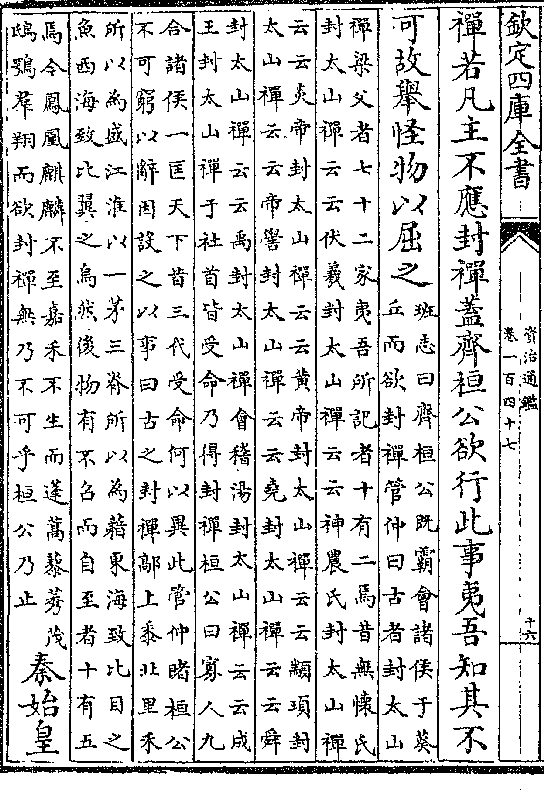 欽定四庫全書
資治通鑑
卷一百四十七
十六
禪若凡主不應封禪蓋齊桓公欲行此事夷吾知其不
可故舉怪物以屈之
班志曰齊桓公既霸會諸侯于葵
丘而欲封禪管仲曰古者封太山
禪梁父者七十二家夷吾所記者十有二焉昔無懷氏
封太山禪云云伏羲封太山禪云云神農氏封太山禪
云云炎帝封太山禪云云黄帝封太山禪云云顓頊封
太山禪云云帝嚳封太山禪云云堯封太山禪云云舜
封太山禪云云禹封太山禪會稽湯封太山禪云云成
王封太山禪于社首皆受命乃得封禪桓公曰寡人九
合諸侯一匡天下昔三代受命何以異此管仲睹桓公
不可窮以辭因設之以事曰古之封禪鄗上黍北里禾
所以為盛江淮以一茅三脊所以為藉東海致比目之
魚西海致比翼之鳥然後物有不召而自至者十有五
焉今鳳凰麒麟不至嘉禾不生而蓬蒿藜莠茂
鴟鴞羣翔而欲封禪無乃不可乎桓公乃止
秦始皇